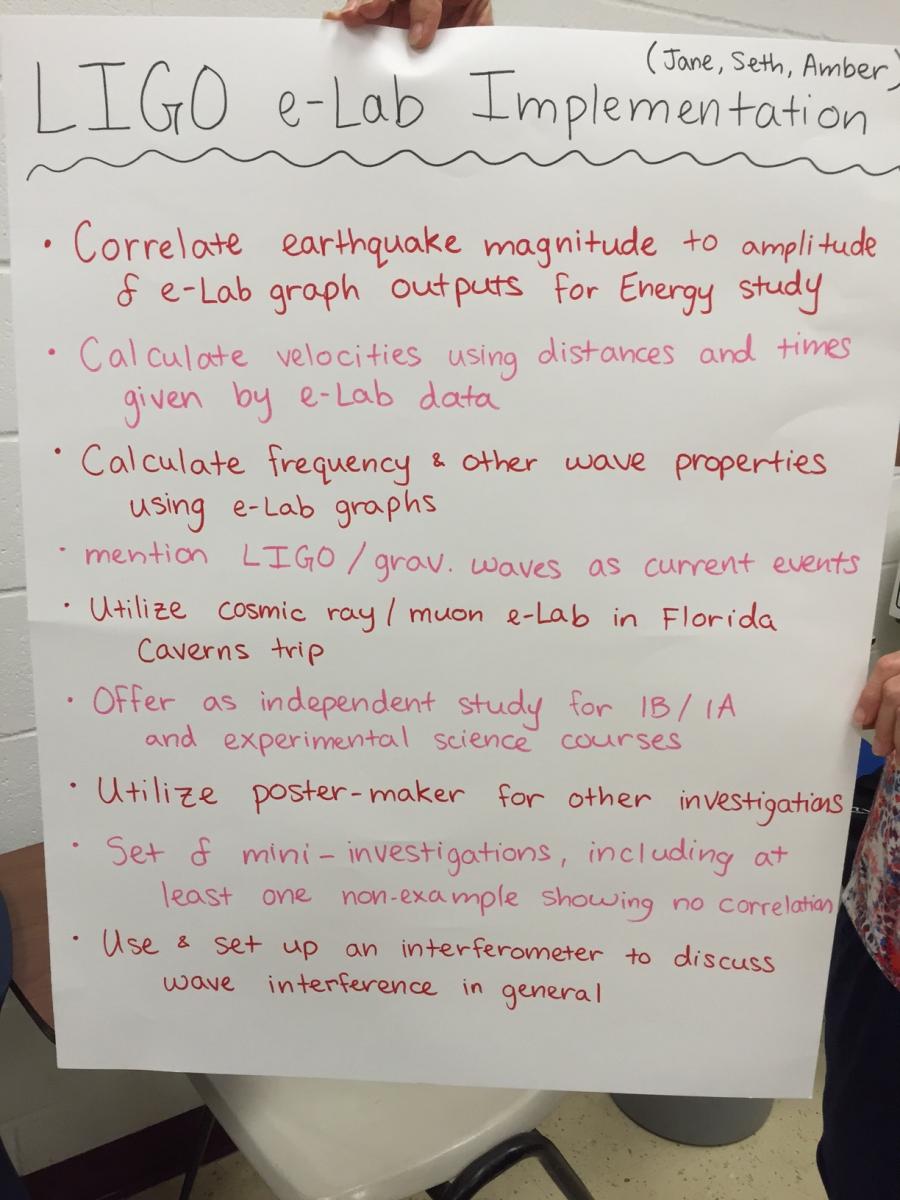 (Jane, Seth, Amber)
LIGO e-Lab Implementation
• Correlate earthquake magnitude to amplitude
of e-Lab graph outputs for Energy study
• Calculate velocities using distances and times
given by e-Lab data
• Calculate frequency & other wave properties
using e-Lab graphs
• mention LIGO / grav. waves as current events
• Utilize cosmic ray / muon e-Lab in Florida
Caverns trip
• Offer as independent study for IB / IA
and experimental science courses
• Utilize poster-maker for other investigations
• Set of mini-investigations, including at
least one non-example showing no correlation
• Use & set up an interferometer to discuss
wave interference in general